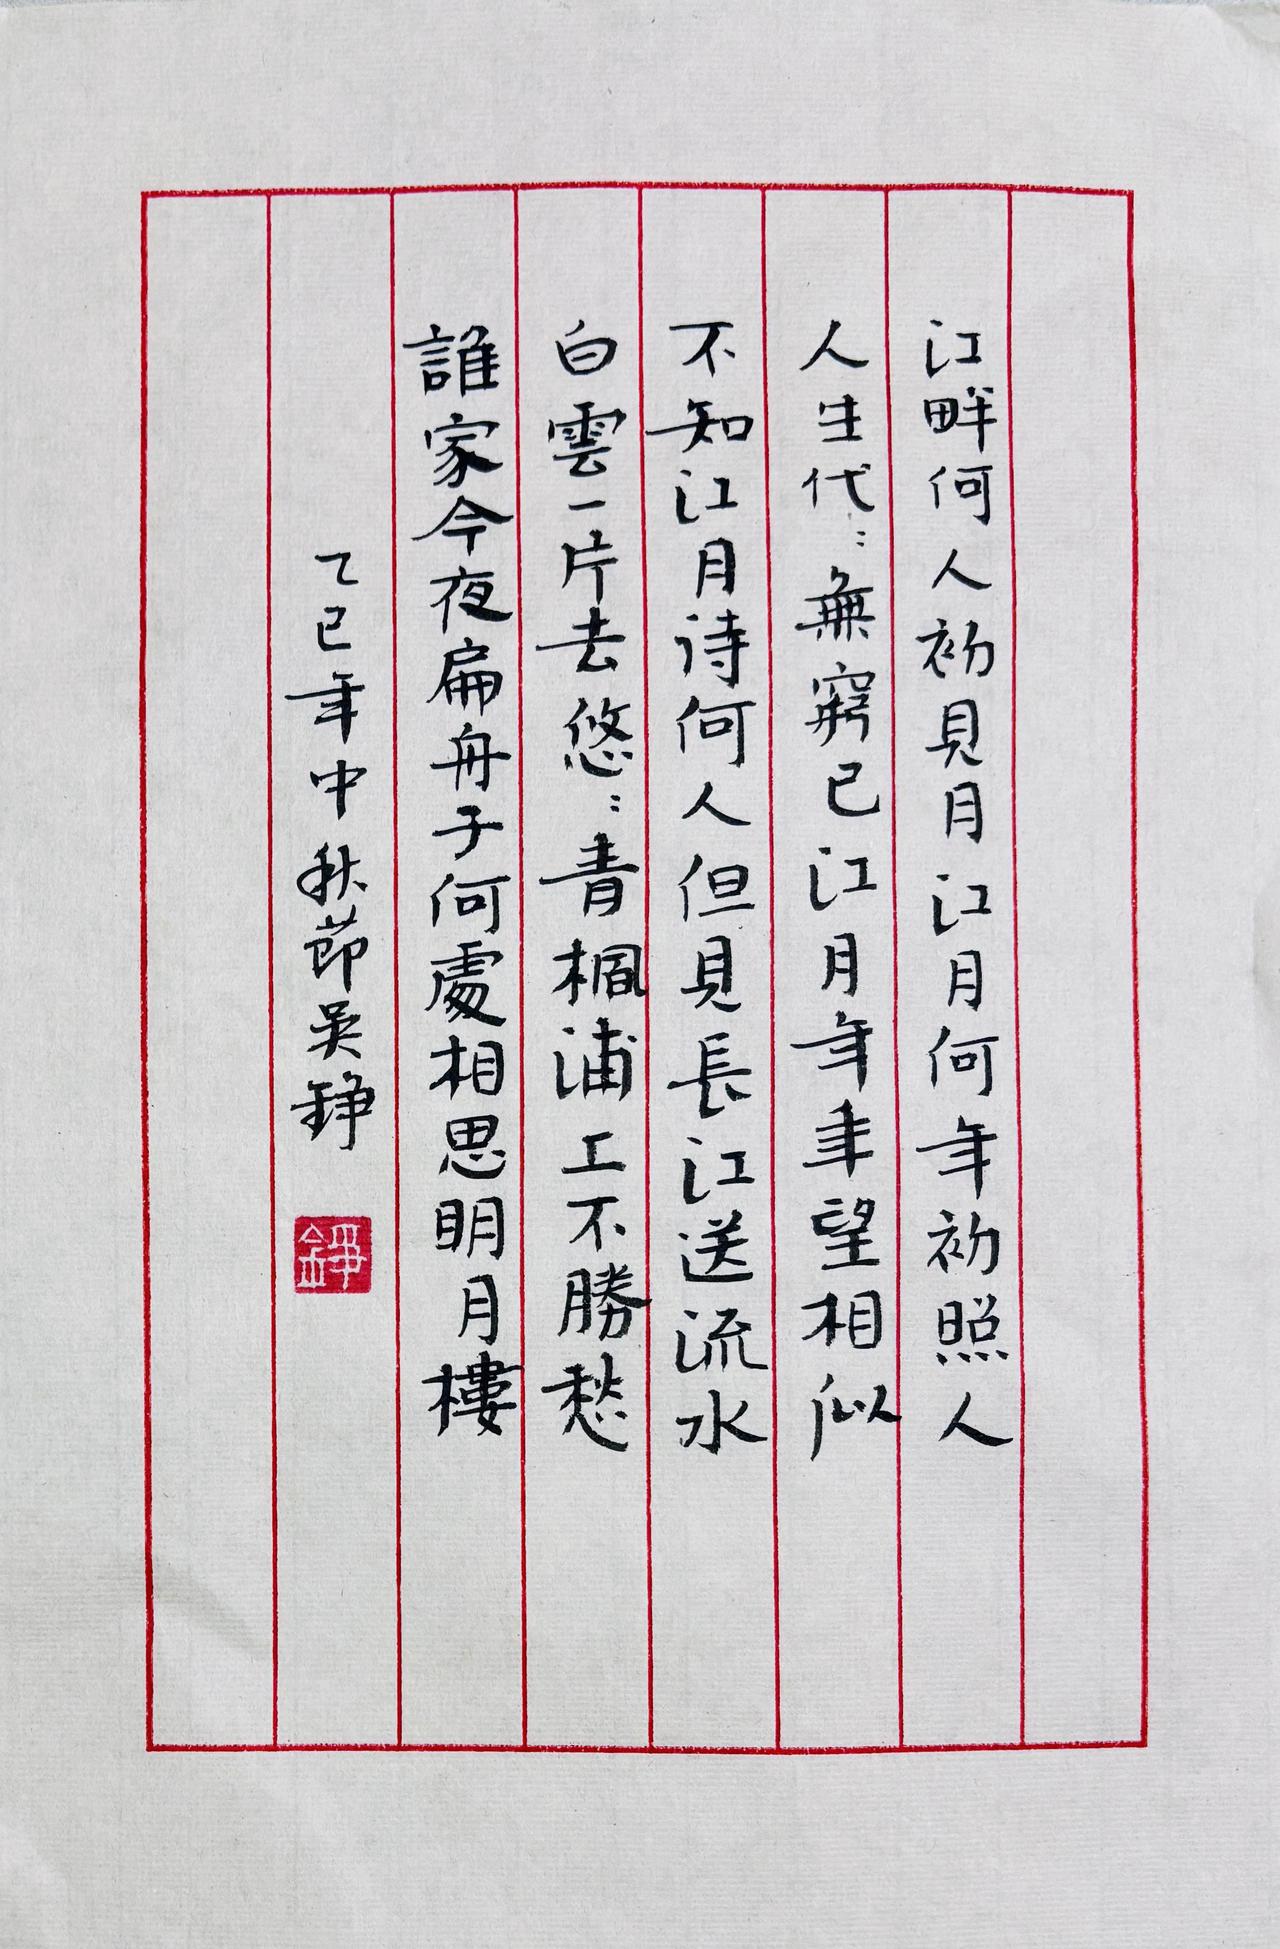 江畔何人初見月江月何年初照人
人生代〻無窮已江月年年望相似
不知江月待何人但見長江送流水
白雲一片去悠〻青楓浦上不勝愁
誰家今夜扁舟子何處相思明月樓
乙巳年中秋節吳錚
錚